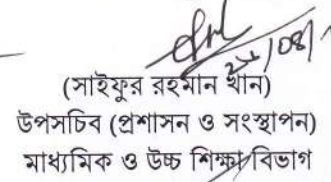 (সাইফুর রহমান খান)
উপসচিব (প্রশাসন ও সংস্থাপন)
মাধ্যমিক ও উচ্চ শিক্ষা বিভাগ